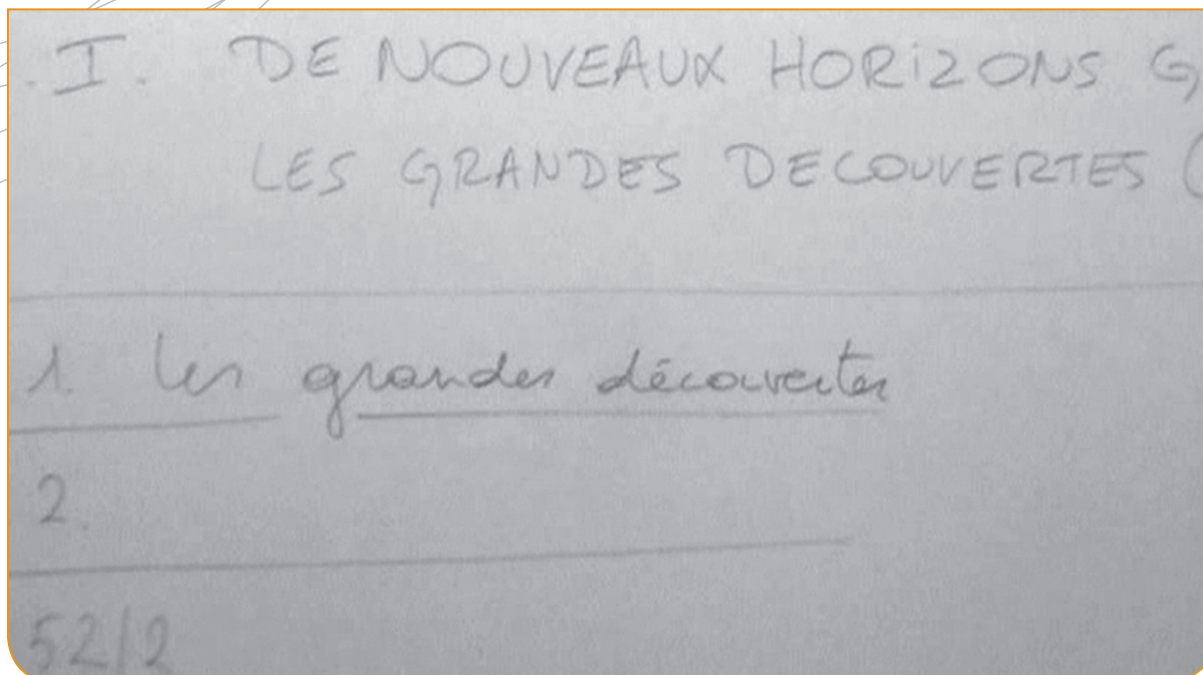 . I. DE NOUVEAUX HORIZONS G
LES GRANDES DECOUVERTES (
1. les grandes découvertes
2.
52/2